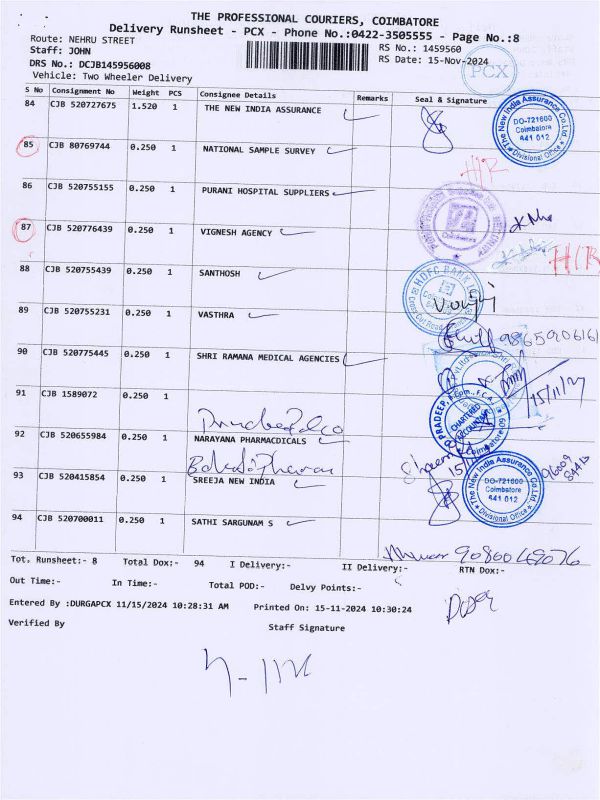 THE PROFESSIONAL COURIERS, COIMBATORE
Delivery Runsheet - PCX - Phone No.:0422-3505555 - Page No.:8
Route: NEHRU STREET
RS No.: 1459560
Staff: JOHN
RS Date: 15-Nov-2024
DRS No.: DCJB145956008
PCX
Vehicle: Two Wheeler Delivery
S No Consignment No Weight PCS Consignee Details Remarks Seal & Signature
84 CJB 520727675 1.520 1 THE NEW INDIA ASSURANCE
The New India Assurance Co.Ltd. DO-721600 Coimbatore 641 012 Divisional Office
85 CJB 80769744 0.250 1 NATIONAL SAMPLE SURVEY
86 CJB 520755155 0.250 1 PURANI HOSPITAL SUPPLIERS
87 CJB 520776439 0.250 1 VIGNESH AGENCY
88 CJB 520755439 0.250 1 SANTHOSH
HDFC BANK
89 CJB 520755231 0.250 1 VASTHRA
90 CJB 520775445 0.250 1 SHRI RAMANA MEDICAL AGENCIES
91 CJB 1589072 0.250 1
PRADEEP, F.C.A. CHARTERED ACCOUNTANT Coimbatore
92 CJB 520655984 0.250 1 NARAYANA PHARMACDICALS
93 CJB 520415854 0.250 1 SREEJA NEW INDIA
The New India Assurance Co.Ltd. DO-721600 Coimbatore 641 012 Divisional Office
94 CJB 520700011 0.250 1 SATHI SARGUNAM S
Tot. Runsheet:- 8 Total Dox:- 94 I Delivery:- II Delivery:- RTN Dox:-
Out Time:- In Time:- Total POD:- Delvy Points:-
Entered By :DURGAPCX 11/15/2024 10:28:31 AM Printed On: 15-11-2024 10:30:24
Verified By Staff Signature